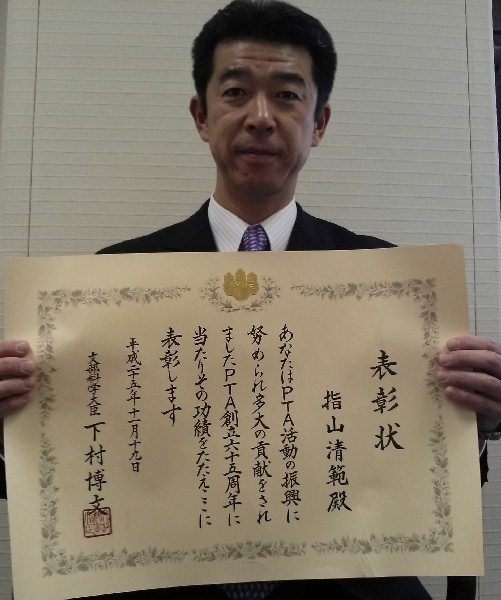 表彰状
指山清範殿
あなたはPTA活動の振興に
努められ多大の貢献をされ
ましたPTA創立六十五周年に
当たりその功績をたたえここに
表彰します
平成二十五年十一月十九日
文部科学大臣 下村博文